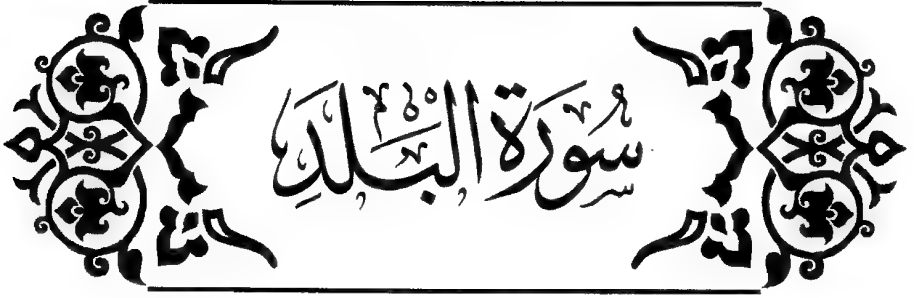 سُورَة الْبَلَدِ